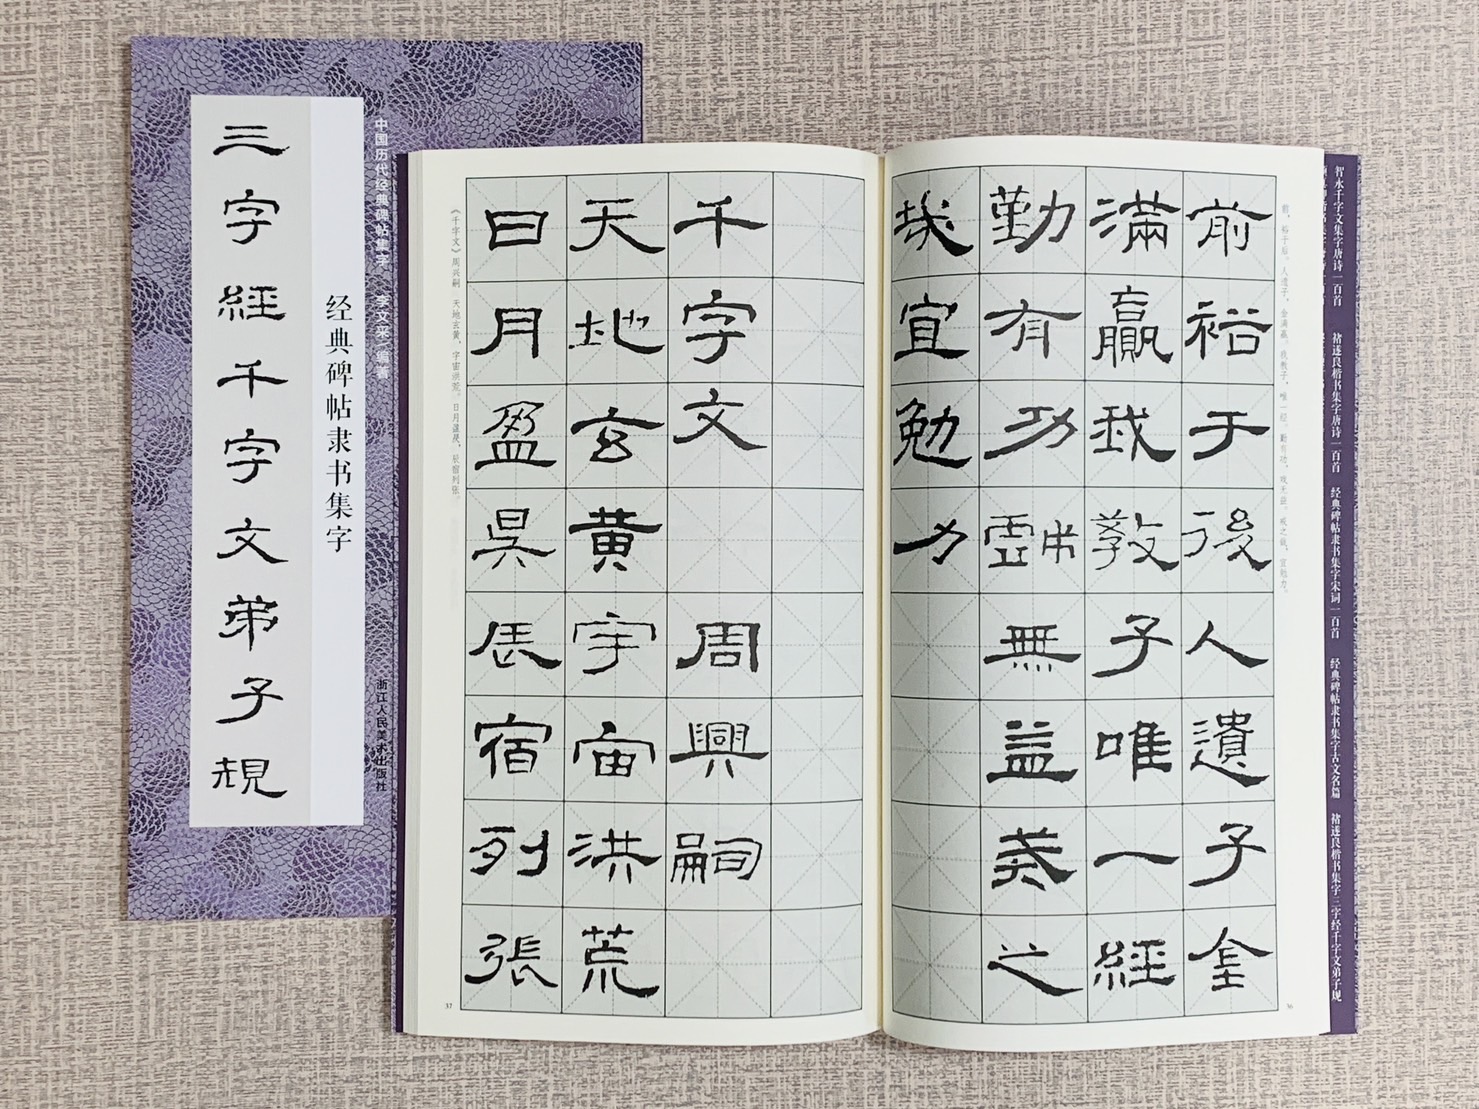 三字經千字文弟子規
经典碑帖隶书集字
中国历代经典碑帖集字 李文采 编著
浙江人民美术出版社
前裕于後人遺子金
滿贏我教子唯一經
勤有功戲無益戒之
哉宜勉力
前，裕于后。人遗子，金满赢。我教子，唯一经。勤有功，戏无益。戒之哉，宜勉力。
36
千字文 周興嗣
天地玄黃宇宙洪荒
日月盈昃辰宿列張
《千字文》周兴嗣 天地玄黄，宇宙洪荒。日月盈昃，辰宿列张。
37
智永千字文集字唐诗一百首 褚遂良楷书集字唐诗一百首 经典碑帖隶书集字宋词一百首 经典碑帖隶书集字古文名篇 褚遂良楷书集字三字经千字文弟子规